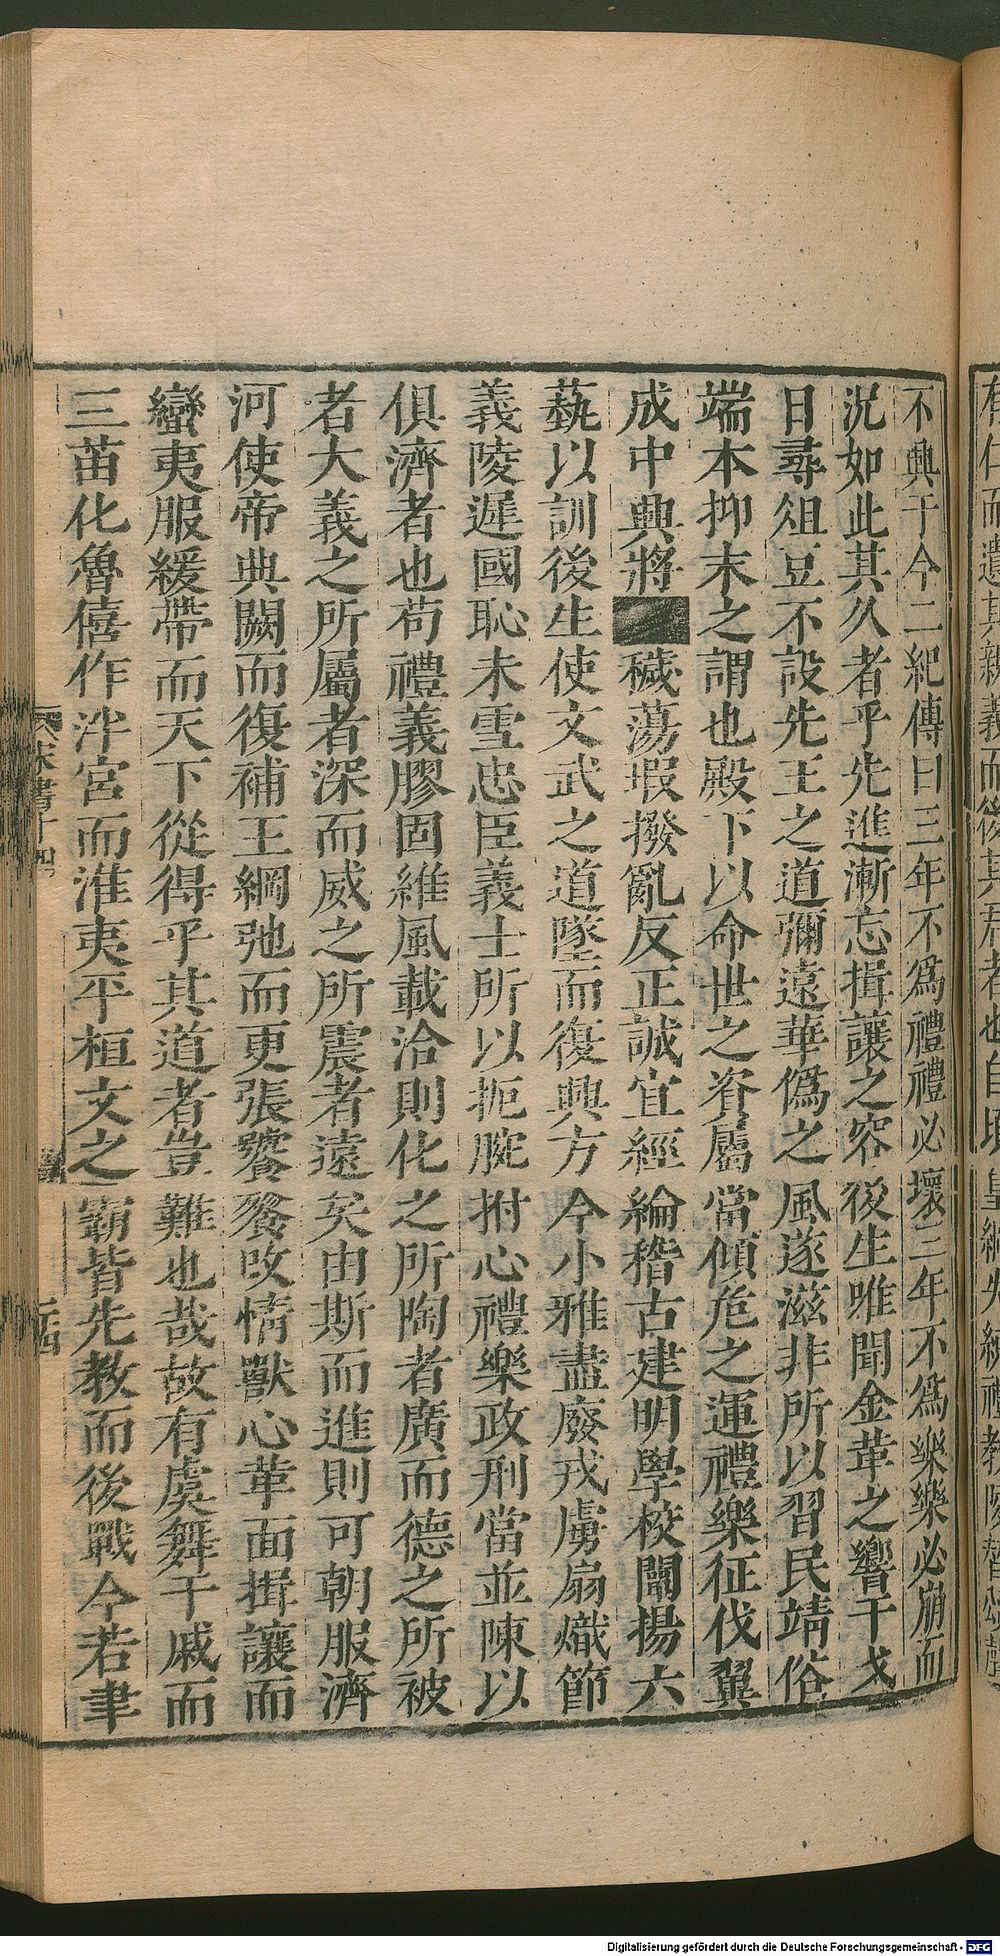 不興于今二紀傳曰三年不爲禮禮必壞三年不爲樂樂必崩而
況如此其久者乎先進漸忘揖讓之容後生唯聞金革之響干戈
日尋俎豆不設先王之道彌遠華僞之風遂滋非所以習民靖俗
端本抑末之謂也殿下以命世之資屬當傾危之運禮樂征伐翼
成中興將穢蕩瑕撥亂反正誠宜經綸稽古建明學校闡揚六
蓺以訓後生使文武之道墜而復興方今小雅盡廢戎虜扇熾節
義陵遲國恥未雪忠臣義士所以扼腕拊心禮樂政刑當並陳以
俱濟者也苟禮義膠固維風載洽則化之所陶者廣而德之所被
者大義之所屬者深而威之所震者遠矣由斯而進則可朝服濟
河使帝典闕而復補王綱弛而更張饕餮攺情獸心革面揖讓而
蠻夷服緩帶而天下從得乎其道者豈難也哉故有虞舞干戚而
三苗化魯僖作泮宮而淮夷平桓文之霸皆先教而後戰今若聿
宋書十四
二四
Digitalisierung gefördert durch die Deutsche Forschungsgemeinschaft - DFG